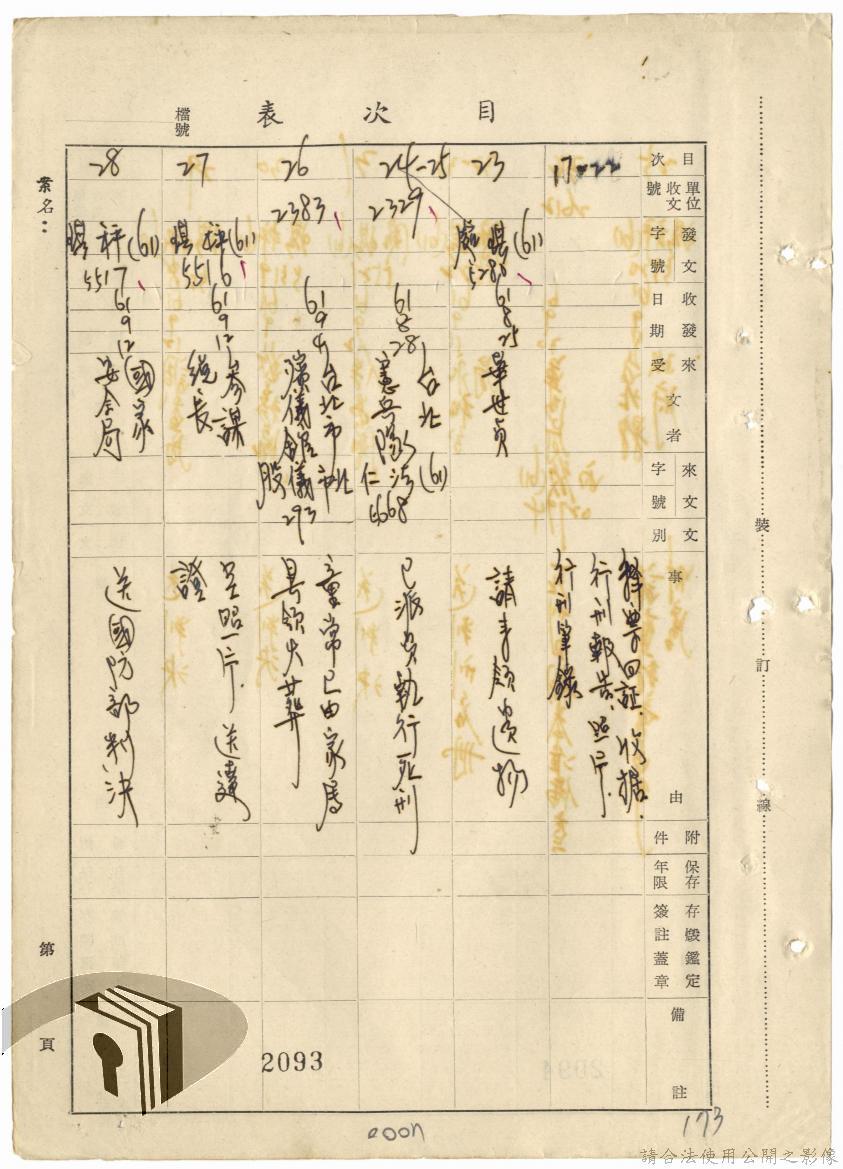 目次表
檔號
案名：
目次
單位收文號
發文字號
收發日期
來受文者
來文字號
文別
事由
附件
保存年限
存燬鑑定簽註蓋章
備註
17-22
釋票回証、收據、
行刑報告、照片、
行刑筆錄
23
(61)
5280
61
8
25
畢世貞
請具領遺物
24-25
2329
61
8
28
台北
憲兵隊
(61)
仁法
4668
已派員執行死刑
26
2383
61
9
4
台北市
殯儀館
儀
股
293
已由家屬
具領火葬
27
(61)
5516
61
9
12
參謀
總長
呈照片、送達
證
28
(61)
5517
61
9
12
國家
安全局
送國防部判決
第
頁
裝
訂
線
2093
173
請合法使用公開之影像